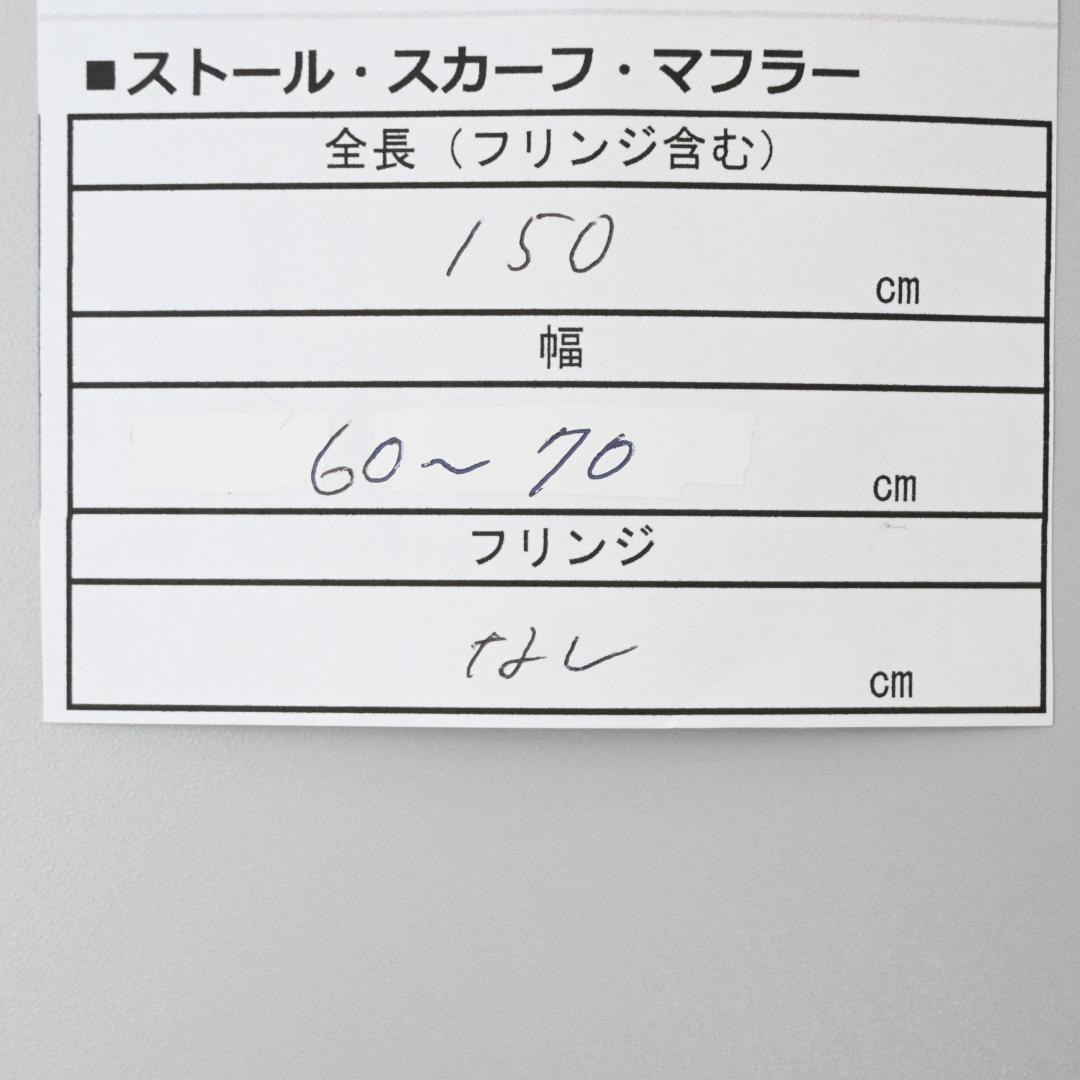 ■ストール・スカーフ・マフラー
全長（フリンジ含む）
150
cm
幅
60～70
cm
フリンジ
なし
cm